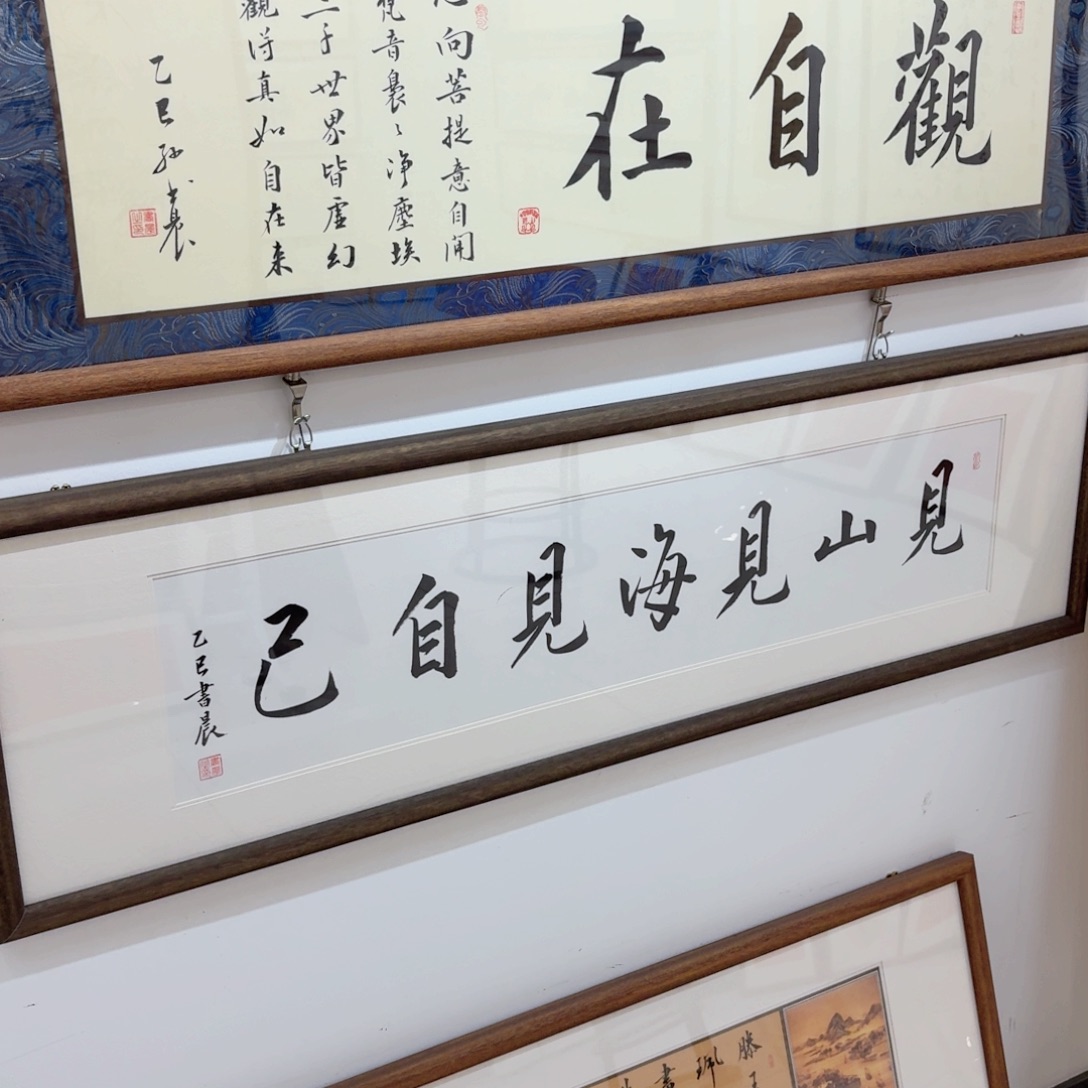 觀自在
向菩提意自開
梵音裊々净塵埃
三千世界皆虚幻
觀得真如自在来
乙巳孙书晨
見山見海見自己
乙巳書晨
滕王
珮
書